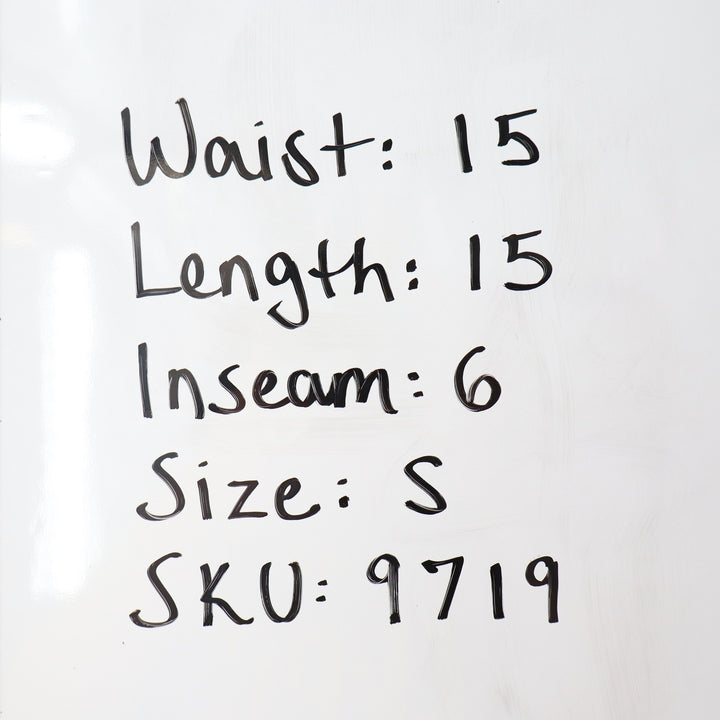 Waist: 15
Length: 15
Inseam: 6
Size: S
SKU: 9719